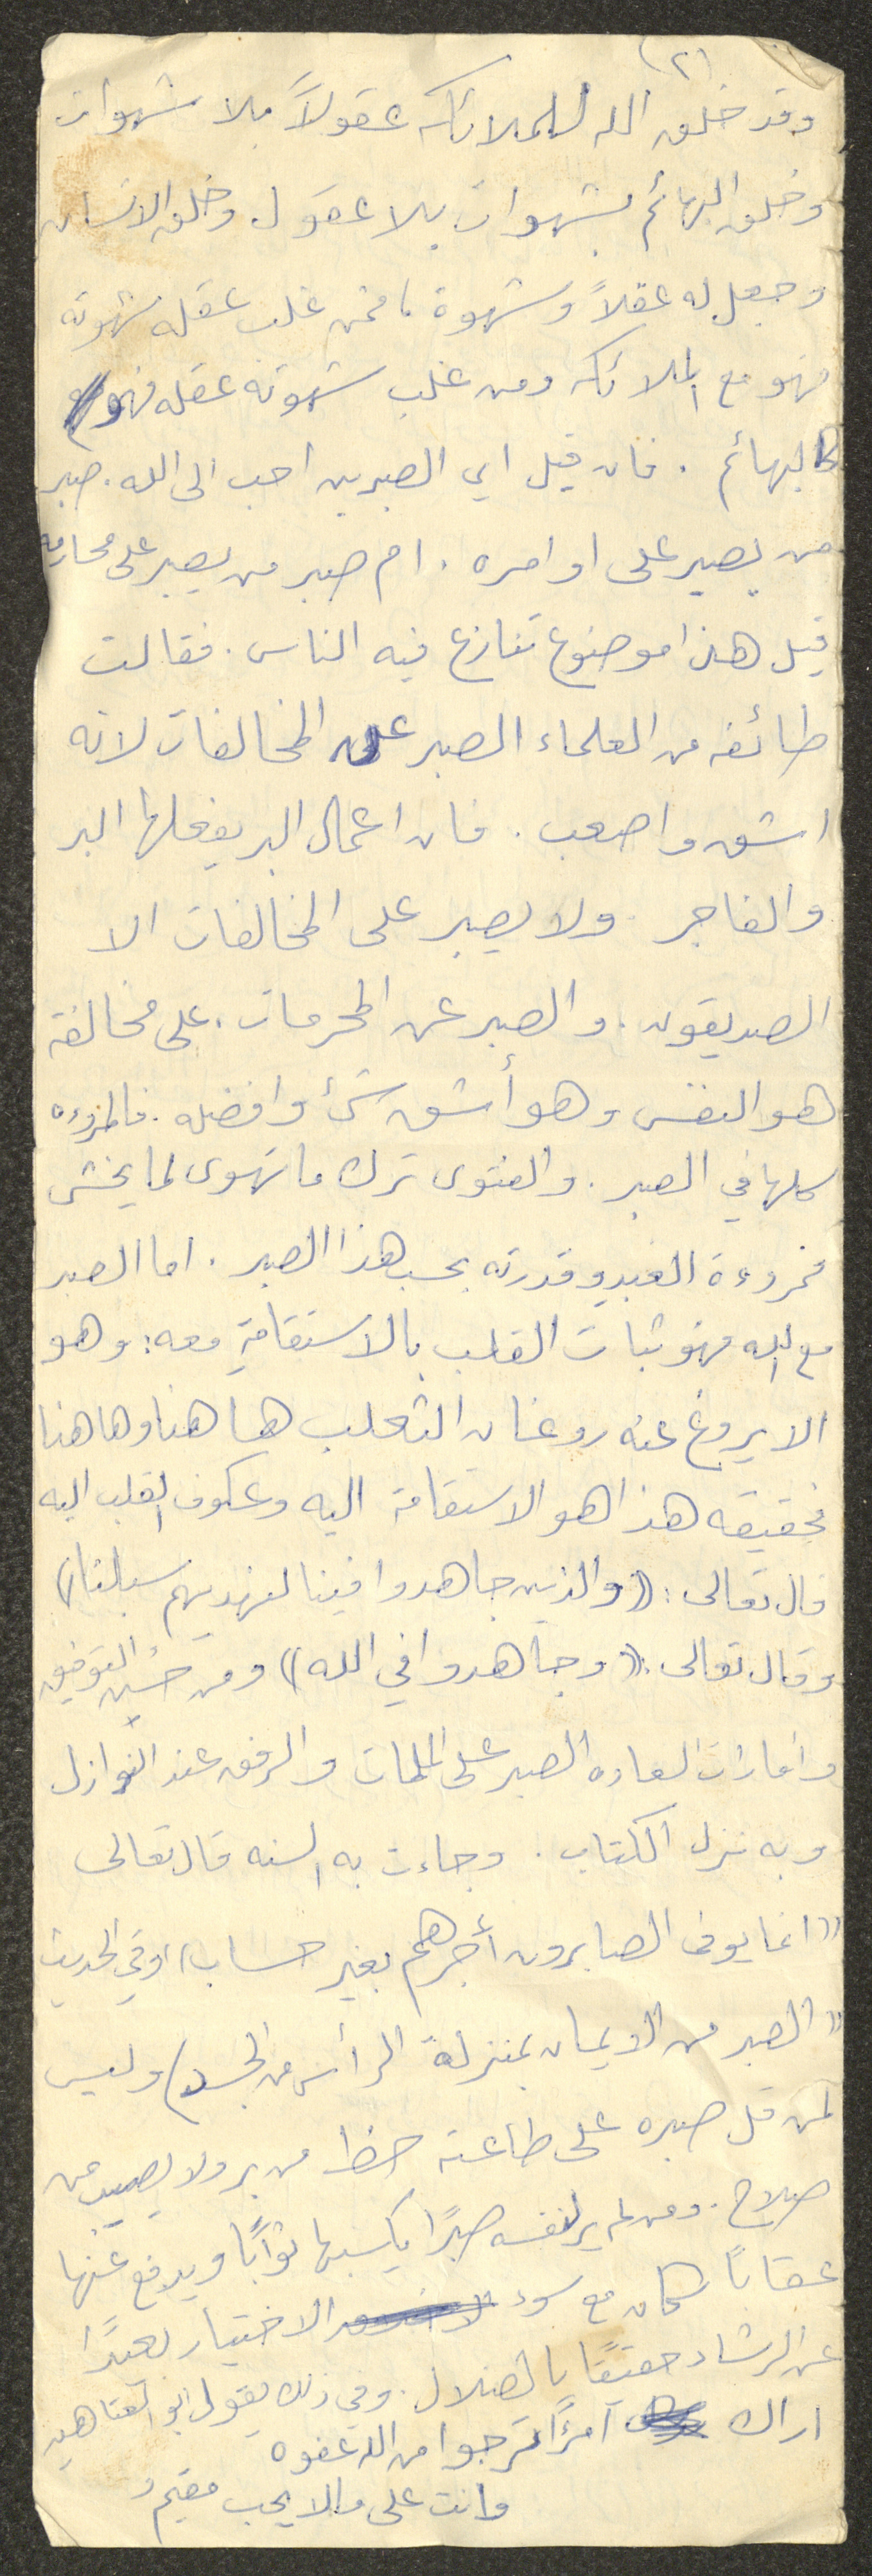 (٢)
وقد خلق الله للملائكه عقولاً بلا شهوات
وخلق البهائم بشهوات بلا عقول. وخلق الانسان
وجعل له عقلاً وشهوة فمن غلب عقله شهوته
فهو مع الملائكه ومن غلب شهوته عقله فهو
كالبهائم. فان قيل اي الصبرين احب الى الله. صبر
من يصبر على اوامره. ام صبر من يصبر على محارمه
قيل هذا موضوع تنازع فيه الناس. فقالت
طائفه من العلماء الصبر عن المخالفات لانه
اشق واصعب. فان اعمال البر يفعلها البر
والفاجر ولا يصبر على المخالفات الا
الصديقون. والصبر عن المحرمات. على مخالفة
هو النفس وهو أشق شئ وافضله. فالمروءه
كلها في الصبر. والفتوى ترك ما تهوى لما يخشى
فمروءة العبد وقدرته بحسب هذا الصبر. اما الصبر
مع الله فهو ثبات القلب بالاستقامة معه: وهو
الا يروغ عنه روغان الثعلب هاهنا وهاهنا
فحقيقه هذا هو الاستقامة اليه وعكوف القلب اليه
قال تعالى: ((والذين جاهدوا فينا لنهديهم سبلنا))
وقال تعالى: ((وجاهدوا في الله)) ومن حسن التوفيق
وامارات السعاده الصبر على الملمات والرفق عند النوازل
وبه نزل الكتاب. وجاءت به السنه قال تعالى
((انما يوفى الصابرون أجرهم بغير حساب)) وفي الحديث
((الصبر من الايمان بمنزلة الرأس من الجسد)) وليس
لمن قل صبره على طاعة حظ من بر ولا نصيب من
صلاح. ومن لم ير لنفسه صبرًا يكسبها ثوابًا ويدفع عنها
عقابًا كان مع سوء الاختيار بعيدًا
عن الرشاد حقيقًا بالضلال. وفي ذلك يقول ابو العتاهيه
اراك امرًأ ترجوا من الله عفوه
وانت على مالا يحب مقيمُ